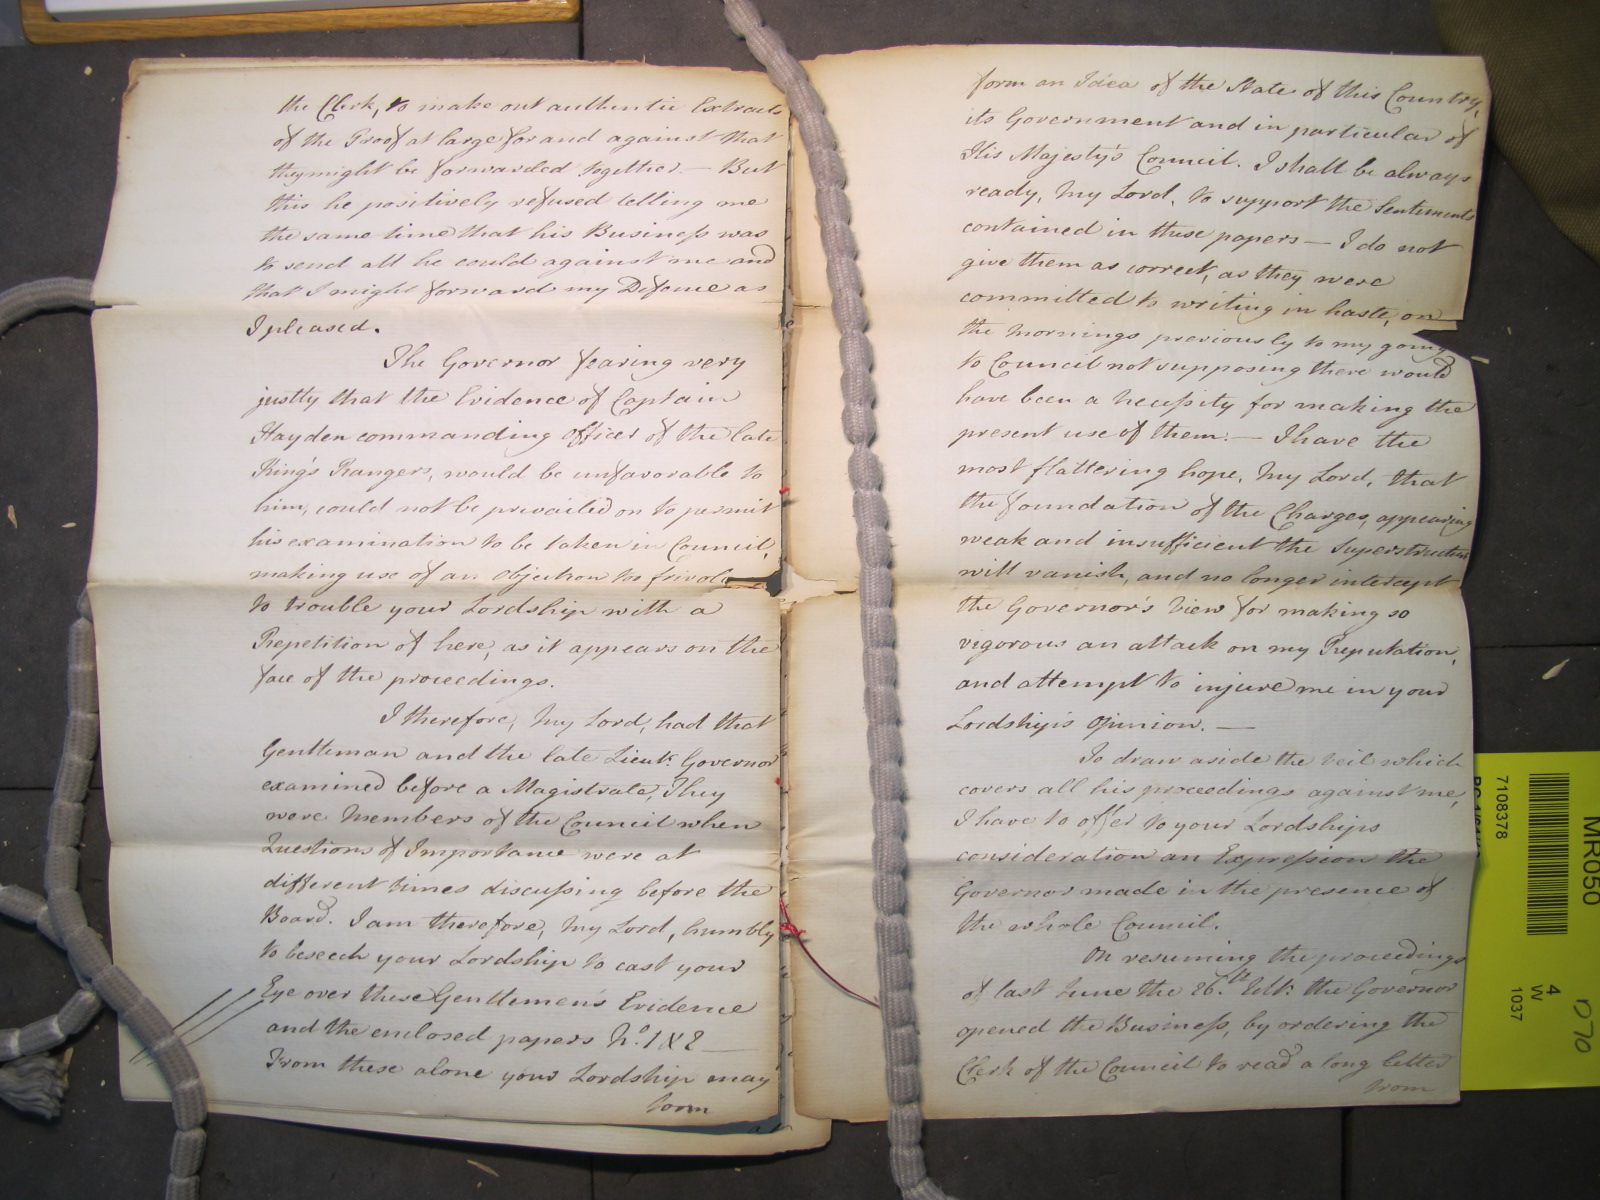 the Clerk, to make out authentic Extracts
of the Proof at large for and against that
they might be forwarded together. — But
this he positively refused telling me
the same time that his Business was
to send all he could against me and
that I might forward my Defence as
I pleased.
The Governor fearing very
justly that the Evidence of Captain
Hayden commanding Officer of the late
King's Rangers, would be unfavorable to
him, could not be prevailed on to permit
his examination to be taken in Council,
making use of an Objection too frivol
to trouble your Lordship with a
Repetition of here, as it appears on the
face of the proceedings.
I therefore, My Lord, had that
Gentleman and the late Lieut. Governor
examined before a Magistrate, They
were Members of the Council when
Questions of Importance were at
different times discussing before the
Board. I am therefore, My Lord, humbly
to beseech your Lordship to cast your
Eye over these Gentlemen's Evidence
and the enclosed papers No. 1 & 2 —
From these alone your Lordship may
form
form an Idea of the State of this Country,
its Government and in particular of
His Majesty's Council. I shall be always
ready, My Lord, to support the Sentiments
contained in these papers — I do not
give them as correct, as they were
committed to writing in haste, on
the mornings previously to my going
to Council not supposing there would
have been a necessity for making the
present use of them. — I have the
most flattering hope, My Lord, that
the foundation of the Charges, appearing
weak and insufficient the Superstructure
will vanish, and no longer intercept
the Governor's View for making so
vigorous an attack on my Reputation,
and attempt to injure me in your
Lordship's Opinion. —
To draw aside the veil which
covers all his proceedings against me,
I have to offer to your Lordships
consideration an Expression the
Governor made in the presence of
the whole Council.
On resuming the proceedings
of last June the 26th Ult: the Governor
opened the Business, by ordering the
Clerk of the Council to read a long letter
from
7108378
MR050
4
W
1037
1070